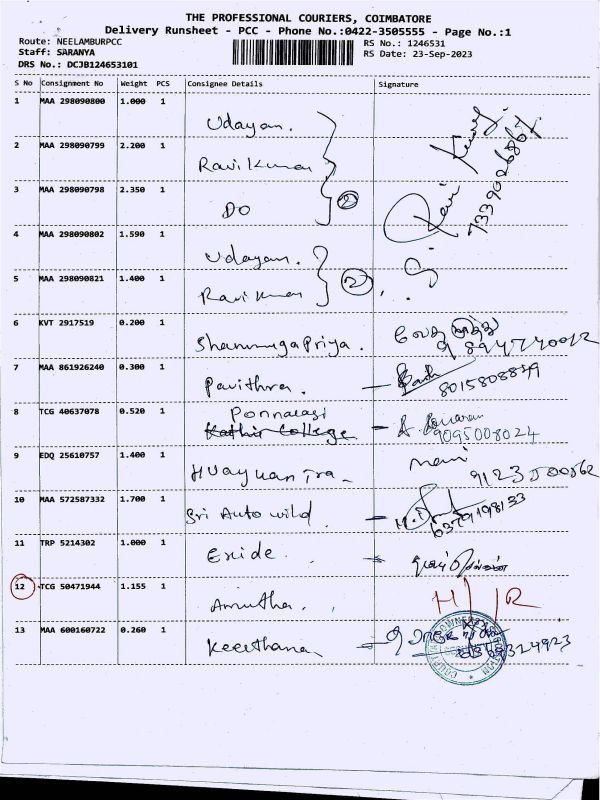 THE PROFESSIONAL COURIERS, COIMBATORE
Delivery Runsheet - PCC - Phone No.:0422-3505555 - Page No.:1
Route: NEELAMBURPCC
RS No.: 1246531
Staff: SARANYA
RS Date: 23-Sep-2023
DRS No.: DCJB124653101
S No Consignment No Weight PCS Consignee Details Signature
1 MAA 298090800 1.000 1 Udayan.
2 MAA 298090799 2.200 1 Ravi Kumar
3 MAA 298090798 2.350 1 DO 2
S. Ravi Kumar
4 MAA 298090802 1.590 1 Udayan.
5 MAA 298090821 1.400 1 Ravi Kumar 2
6 KVT 2917519 0.200 1 Shanmugapriya.
7 MAA 861926240 0.300 1 Pavithra. 8015808839
8 TCG 40637078 0.520 1 Ponnarasi
Kathir College 9095008024
9 EDQ 25610757 1.400 1 Huayuan Tra mani 9123500562
10 MAA 572587332 1.700 1 Sri Auto wild 6379198133
11 TRP 5214302 1.000 1 Exide.
12 TCG 50471944 1.155 1 Amutha. H/R
13 MAA 600160722 0.260 1 Keerthana